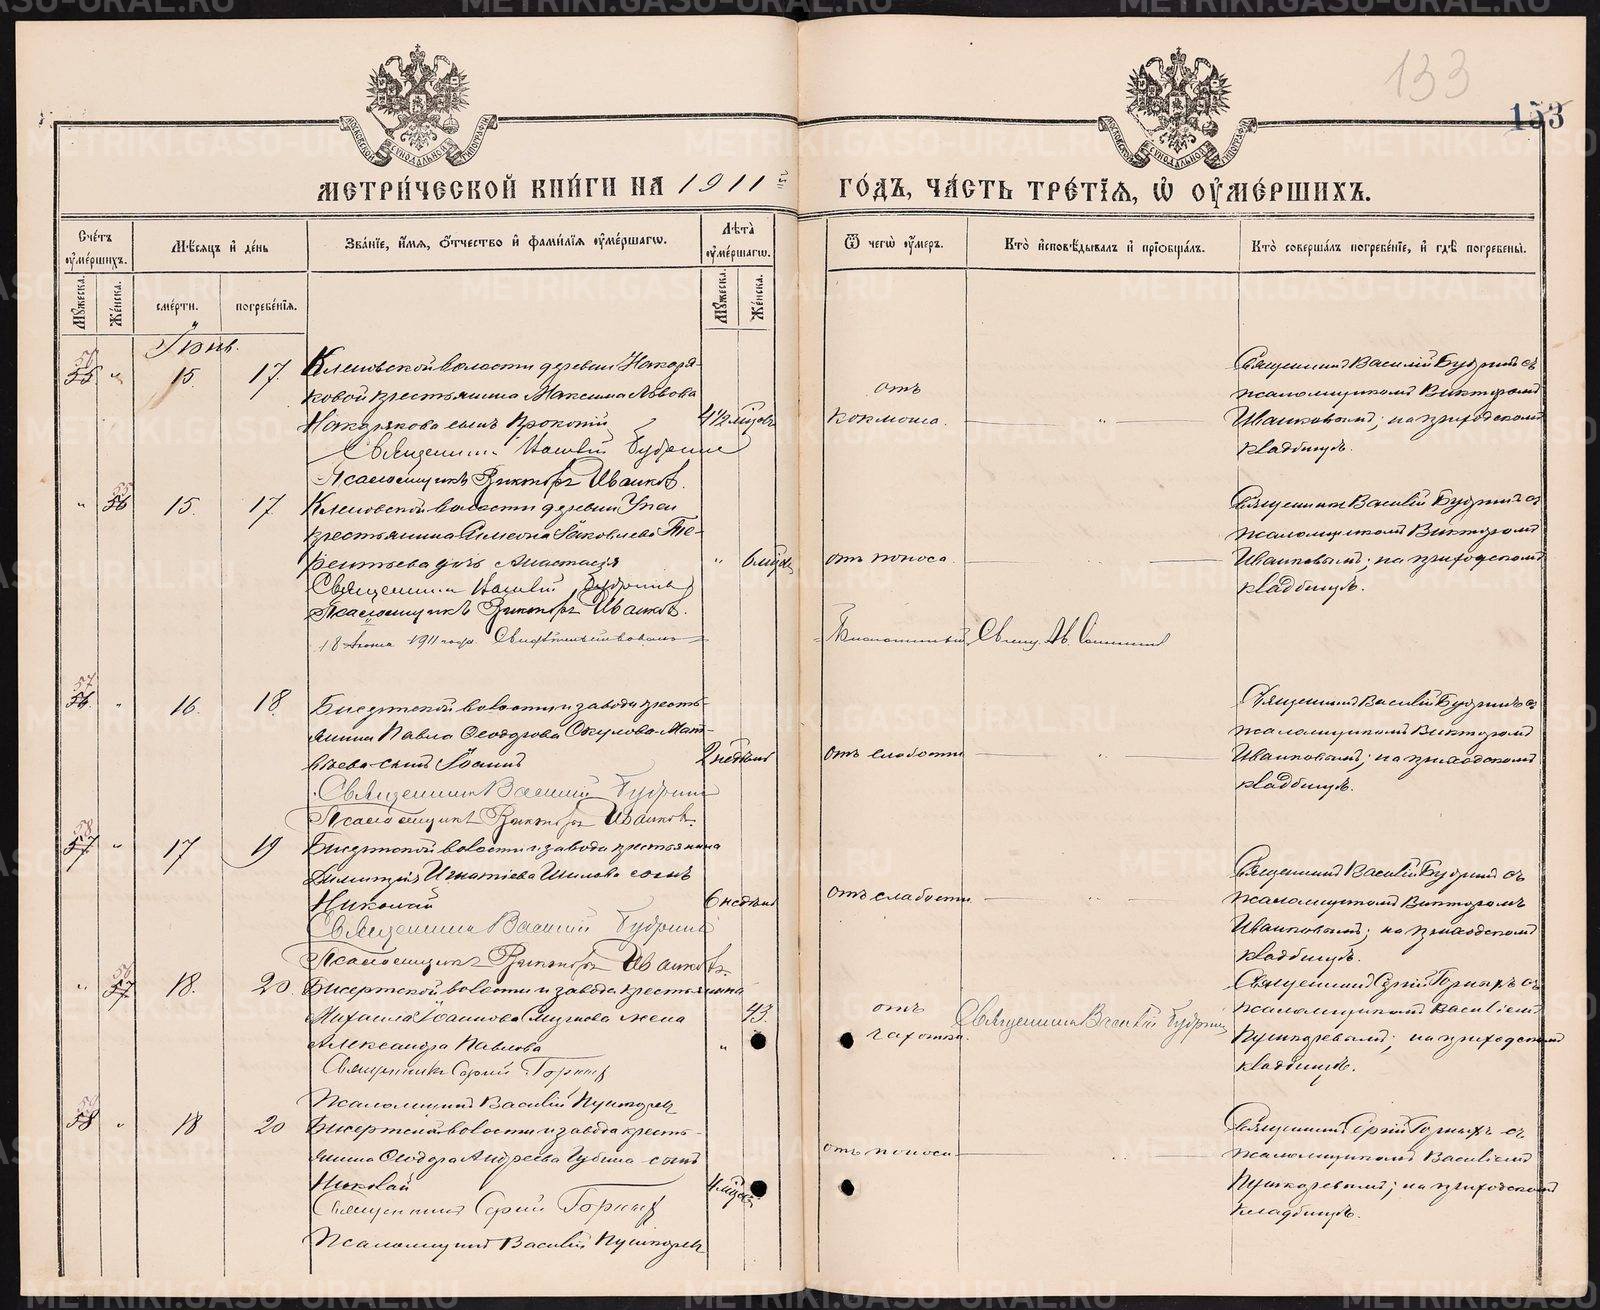 133
153
МОСКОВСКОЙ СУНОДАЛЬНОЙ ТИПОГРАФІИ
МОСКОВСКОЙ СУНОДАЛЬНОЙ ТИПОГРАФІИ
МЕТРИ́ЧЕСКОЙ КНИ́ГИ НА 1911 ГО́ДЪ, ЧА́СТЬ ТРЕ́ТІѦ, Ѡ ОУМЕ́РШИХЪ.
Сче́тъ оуме́ршихъ.
Мѣ́сяцъ и де́нь
Зва́нїе, и́мѧ, о́тчество и фами́лїѧ оуме́ршагѡ.
Лѣ́та оуме́ршагѡ.
Ѿ чегѡ̀ оу́меръ.
Кто̀ исповѣ́дывалъ и прїобща́лъ.
Кто̀ соверша́лъ погребе́нїе, и гдѣ̀ погребены̀.
Мꙋ́жеска. Же́нска. сме́рти. погребе́нїѧ. Мꙋ́жеска. Же́нска.
Іюнь.
56
55 " 15. 17. Кленовской волости деревни Накоря-
ковой крестьянина Максима Львова
Накорякова сынъ Прокопій 4 1/2 мѣсяц.
Священникъ Василій Будринъ
Псаломщикъ Викторъ Иванковъ.
отъ
коклюша.
Священникъ Василій Будринъ съ
псаломщикомъ Викторомъ
Иванковымъ; на приходскомъ
кладбищѣ.
55
" 56 15. 17. Кленовской волости деревни
крестьянина Симеона Яковлева Те-
рентьева дочь Анастасія " 6 мѣсяц.
Священникъ Василій Будринъ
Псаломщикъ Викторъ Иванковъ.
18 Іюня 1911 года Свидѣтельствовалъ
отъ поноса.
Благочинный Свящ.
Священникъ Василій Будринъ съ
псаломщикомъ Викторомъ
Иванковымъ; на приходскомъ
кладбищѣ.
57
56. " 16. 18. Бисертской волости и завода кресть-
янина Павла Ѳеодорова Окулова-Мат-
вѣева сынъ Іоаннъ 2 недѣли
Священникъ Василій Будринъ
Псаломщикъ Викторъ Иванковъ.
отъ слабости
Священникъ Василій Будринъ съ
псаломщикомъ Викторомъ
Иванковымъ; на приходскомъ
кладбищѣ.
58
57 " 17 19 Бисертской волости и завода крестьянина
Димитрія Игнатіева Шилова сынъ
Николай 6 недѣль
Священникъ Василій Будринъ
Псаломщикъ Викторъ Иванковъ.
отъ слабости
Священникъ Василій Будринъ съ
псаломщикомъ Викторомъ
Иванковымъ; на приходскомъ
кладбищѣ.
56
" 57 18. 20. Бисертской волости и завода крестьянина
Михаила Іоаннова жена
Александра Павлова " 43.
Священникъ Сергій Горныхъ
Псаломщикъ Василій Пушкаревъ
отъ
чахотки.
Священникъ Василій Будринъ
Священникъ Сергій Горныхъ съ
псаломщикомъ Василіемъ
Пушкаревымъ; на приходскомъ
кладбищѣ.
59
58 " 18 20 Бисертской волости и завода кресть-
янина Ѳеодора Андреева Губина сынъ
Николай 4 мѣсяц.
Священникъ Сергій Горныхъ
Псаломщикъ Василій Пушкаревъ
отъ поноса
Священникъ Сергій Горныхъ съ
псаломщикомъ Василіемъ
Пушкаревымъ; на приходскомъ
кладбищѣ.
METRIKI.GASO-URAL.RU